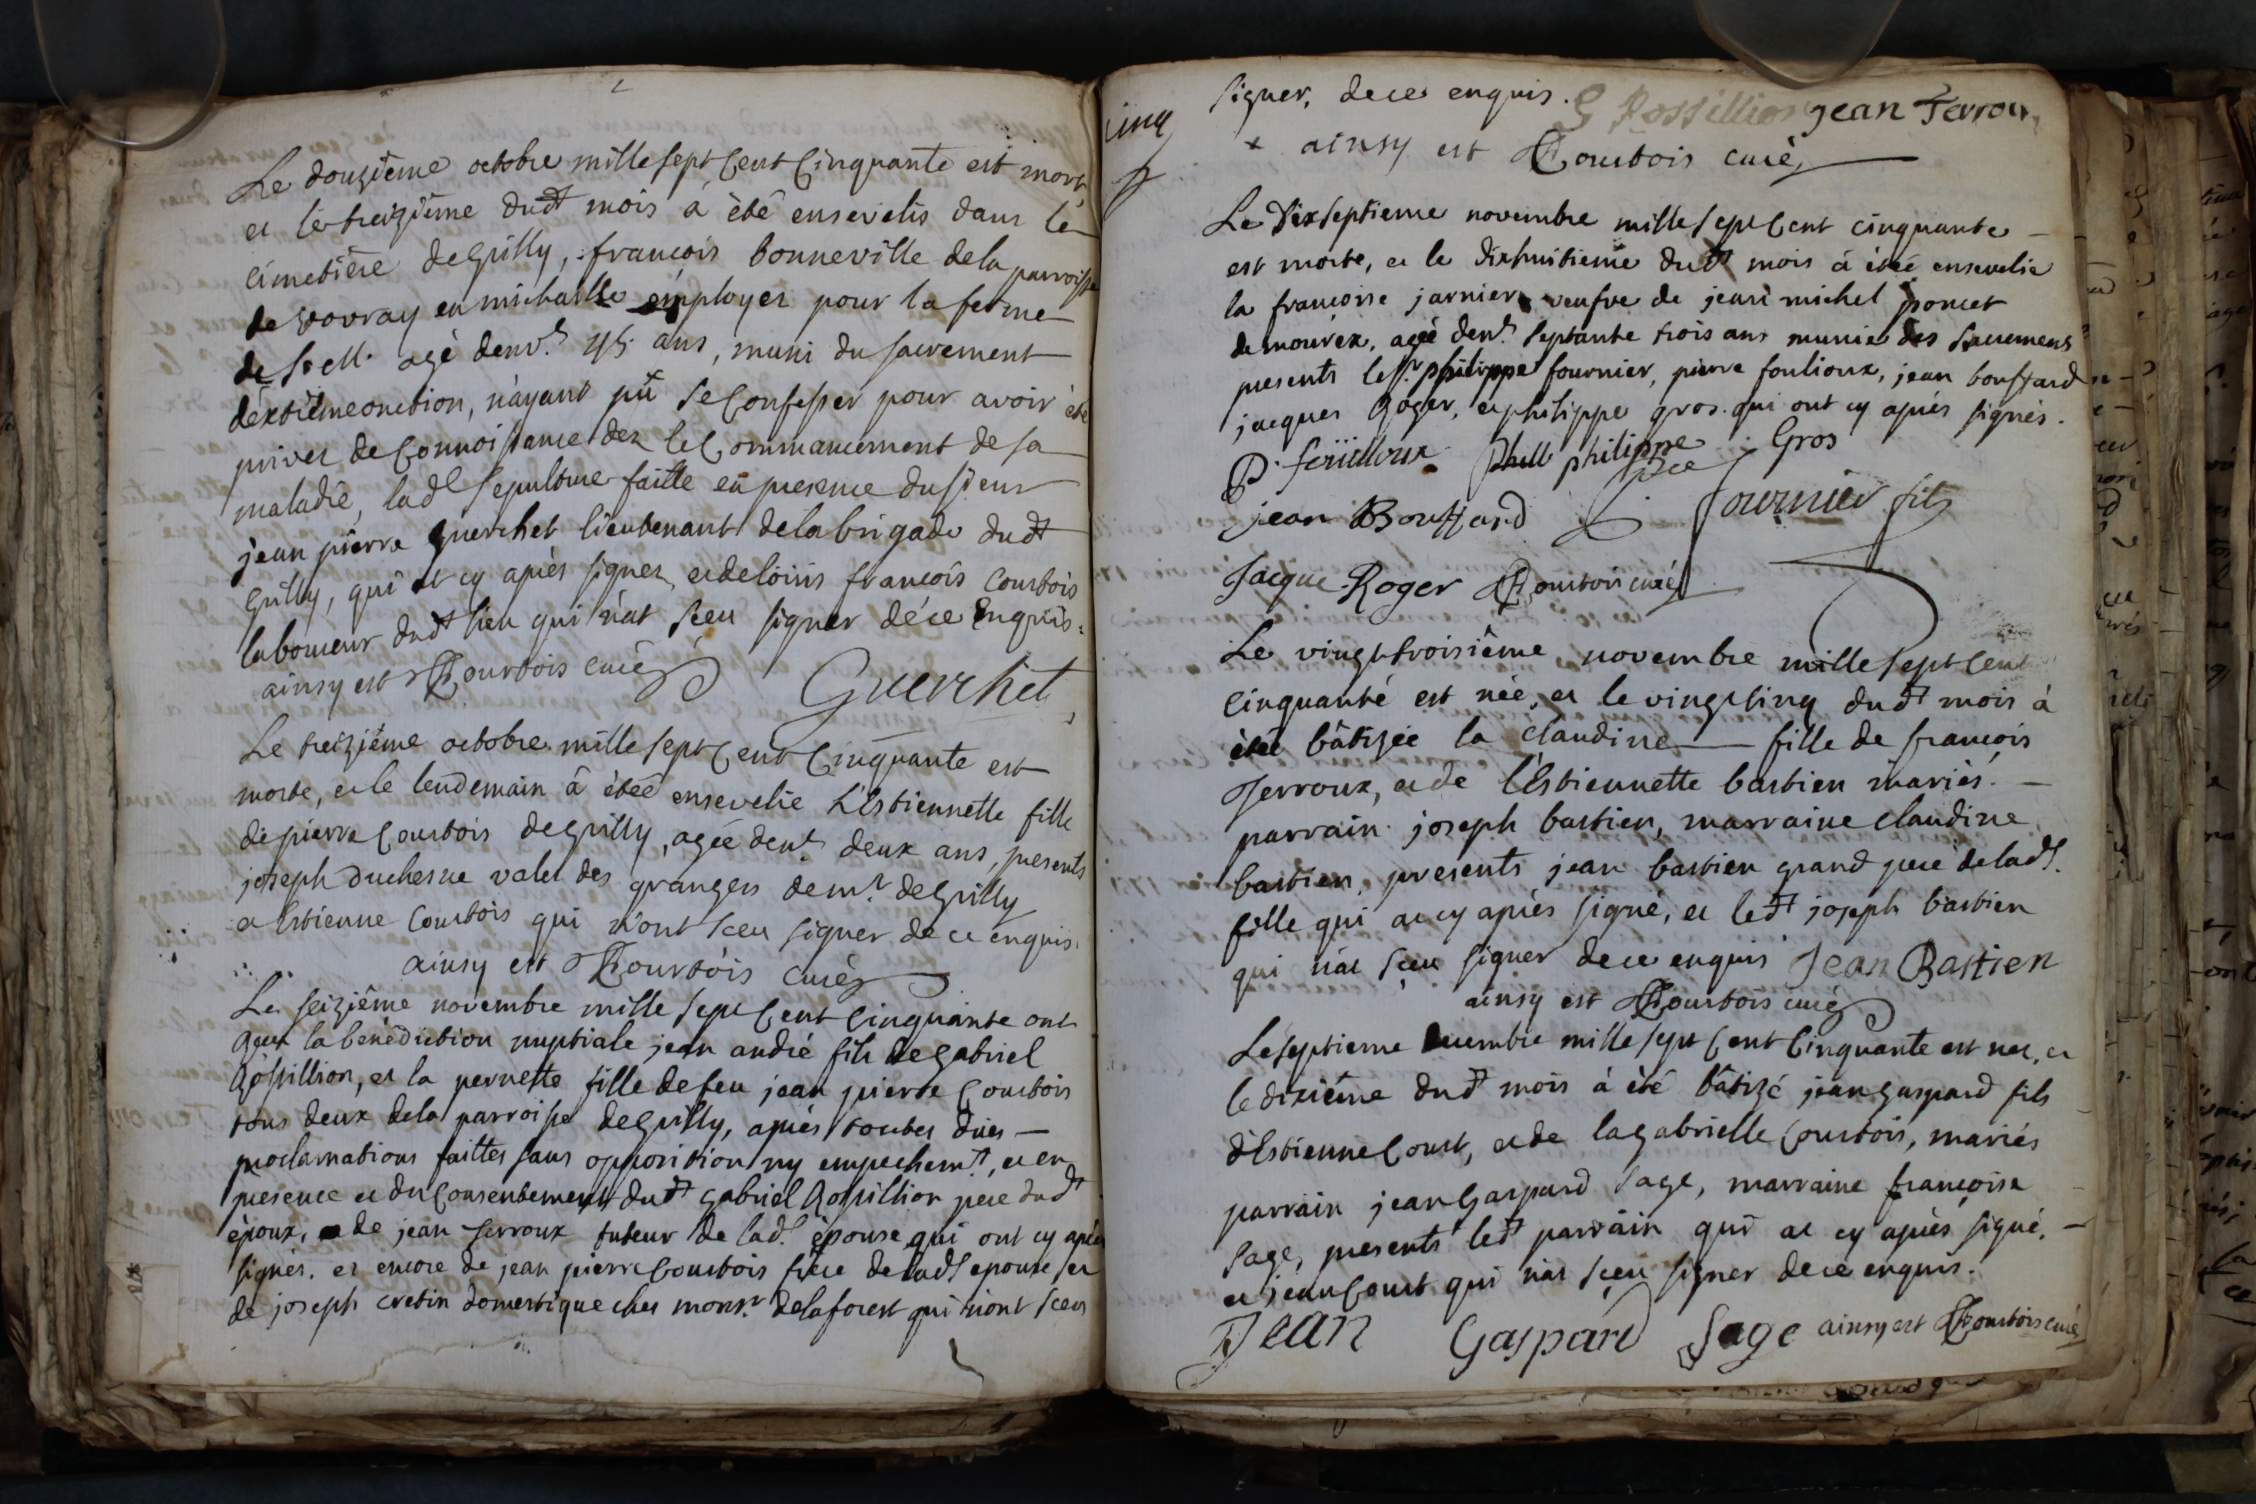 Le douzième octobre mille sept Cent Cinquante est mort
et le treizième dudt mois a èté ensevelis dans le
cimetière de Grilly, françois bonneville dela parroisse
de vovray en michaille employer pour la ferme
de agè denv. 45 ans, muni du sacrement
dèxtrème onction, n'ayant pû se Confesser pour avoir èté
priver de Connoissance dez le Commancement de sa
maladie, lad sepulture faitte en presence du sieur
jean pierre Guerchet lieutenant dela brigade dudt
Grilly, qui at cy après signer, et de loüis françois Courtois
laboureur dudt lieu qui n'at sceu signer dé ce enquis.
ainsy est Courtois curé Guerchet
Le treizième octobre mille sept Cent Cinquante est
morte, et le lendemain â étéé ensevelie L'Estiennette fille
de pierre Courtois de Grilly, agée denv. deux ans, presents
joseph Duchesne valet des grangers de mr. de Grilly
et Estienne Courtois qui n'ont sceu signer de ce enquis.
ainsy est Courtois curé
Le seizième novembre mille sept Cent Cinquante ont
Reçu la benediction nuptiale jean andré fils de Gabriel
Rossillion, et la pernette fille de feu jean pierre Courtois
tous deux dela parroisse de Grilly, après toutes dües
proclamations faittes sans opposition ny empechemt, et en
presence et du Consentement dudt Gabriel Rossillion père dudt
époux, et de jean Terroux tuteur de lad. épouse qui ont cy après
signés. et encore de jean pierre Courtois frère de lad épouse, et
de joseph cretin domestique ches monsr. delaforest qui n'ont sceus
signer, de ce enquis. G Rossillion jean Terrou
x ainsy est Courtois curè
Le Dixseptieme novembre mille sept Cent cinquante
est morte, et le dixhuitieme dudt mois à étéé ensevelie
la françoise jarnier veufve de jean michel poncet
de mourex, agée denv. septante trois ans munie des sacremens
presents le sr. philippe fournier, pierre foulioux, jean bouffard
jacques Roger, et philippe gros. qui ont cy après signés.
P. feüilloux philippe Gros
jean Bouffard fournier fils
Jacque Roger Courtois curé
Le vingt troisième novembre mille sept Cent
Cinquanté est née, et le vingt Cinq dudt mois à
étéé bâtizée la claudine fille de françois
Terroux, et de l'Estiennette bastien mariés.
parrain joseph bastien, marraine claudine
bastien, presents jean bastien grand pere de lad.
fille qui at cy après signé, et ledt joseph bastien
qui n'at sceu signer de ce enquis Jean Bastien
ainsy est Courtois curé
Le septieme decembre mille sept Cent Cinquante est nee, et
le dixième dudt mois à été bâtizé jean gaspard fils
d'Estienne Court, et de la gabrielle Courtois, mariés
parrain jean Gaspard sage, marraine françoise
sage, presents ledt parrain qui at cy après signé.
et jean Court qui n'at sceu signer de ce enquis.
Jean Gaspard Sage ainsy est Courtois curé